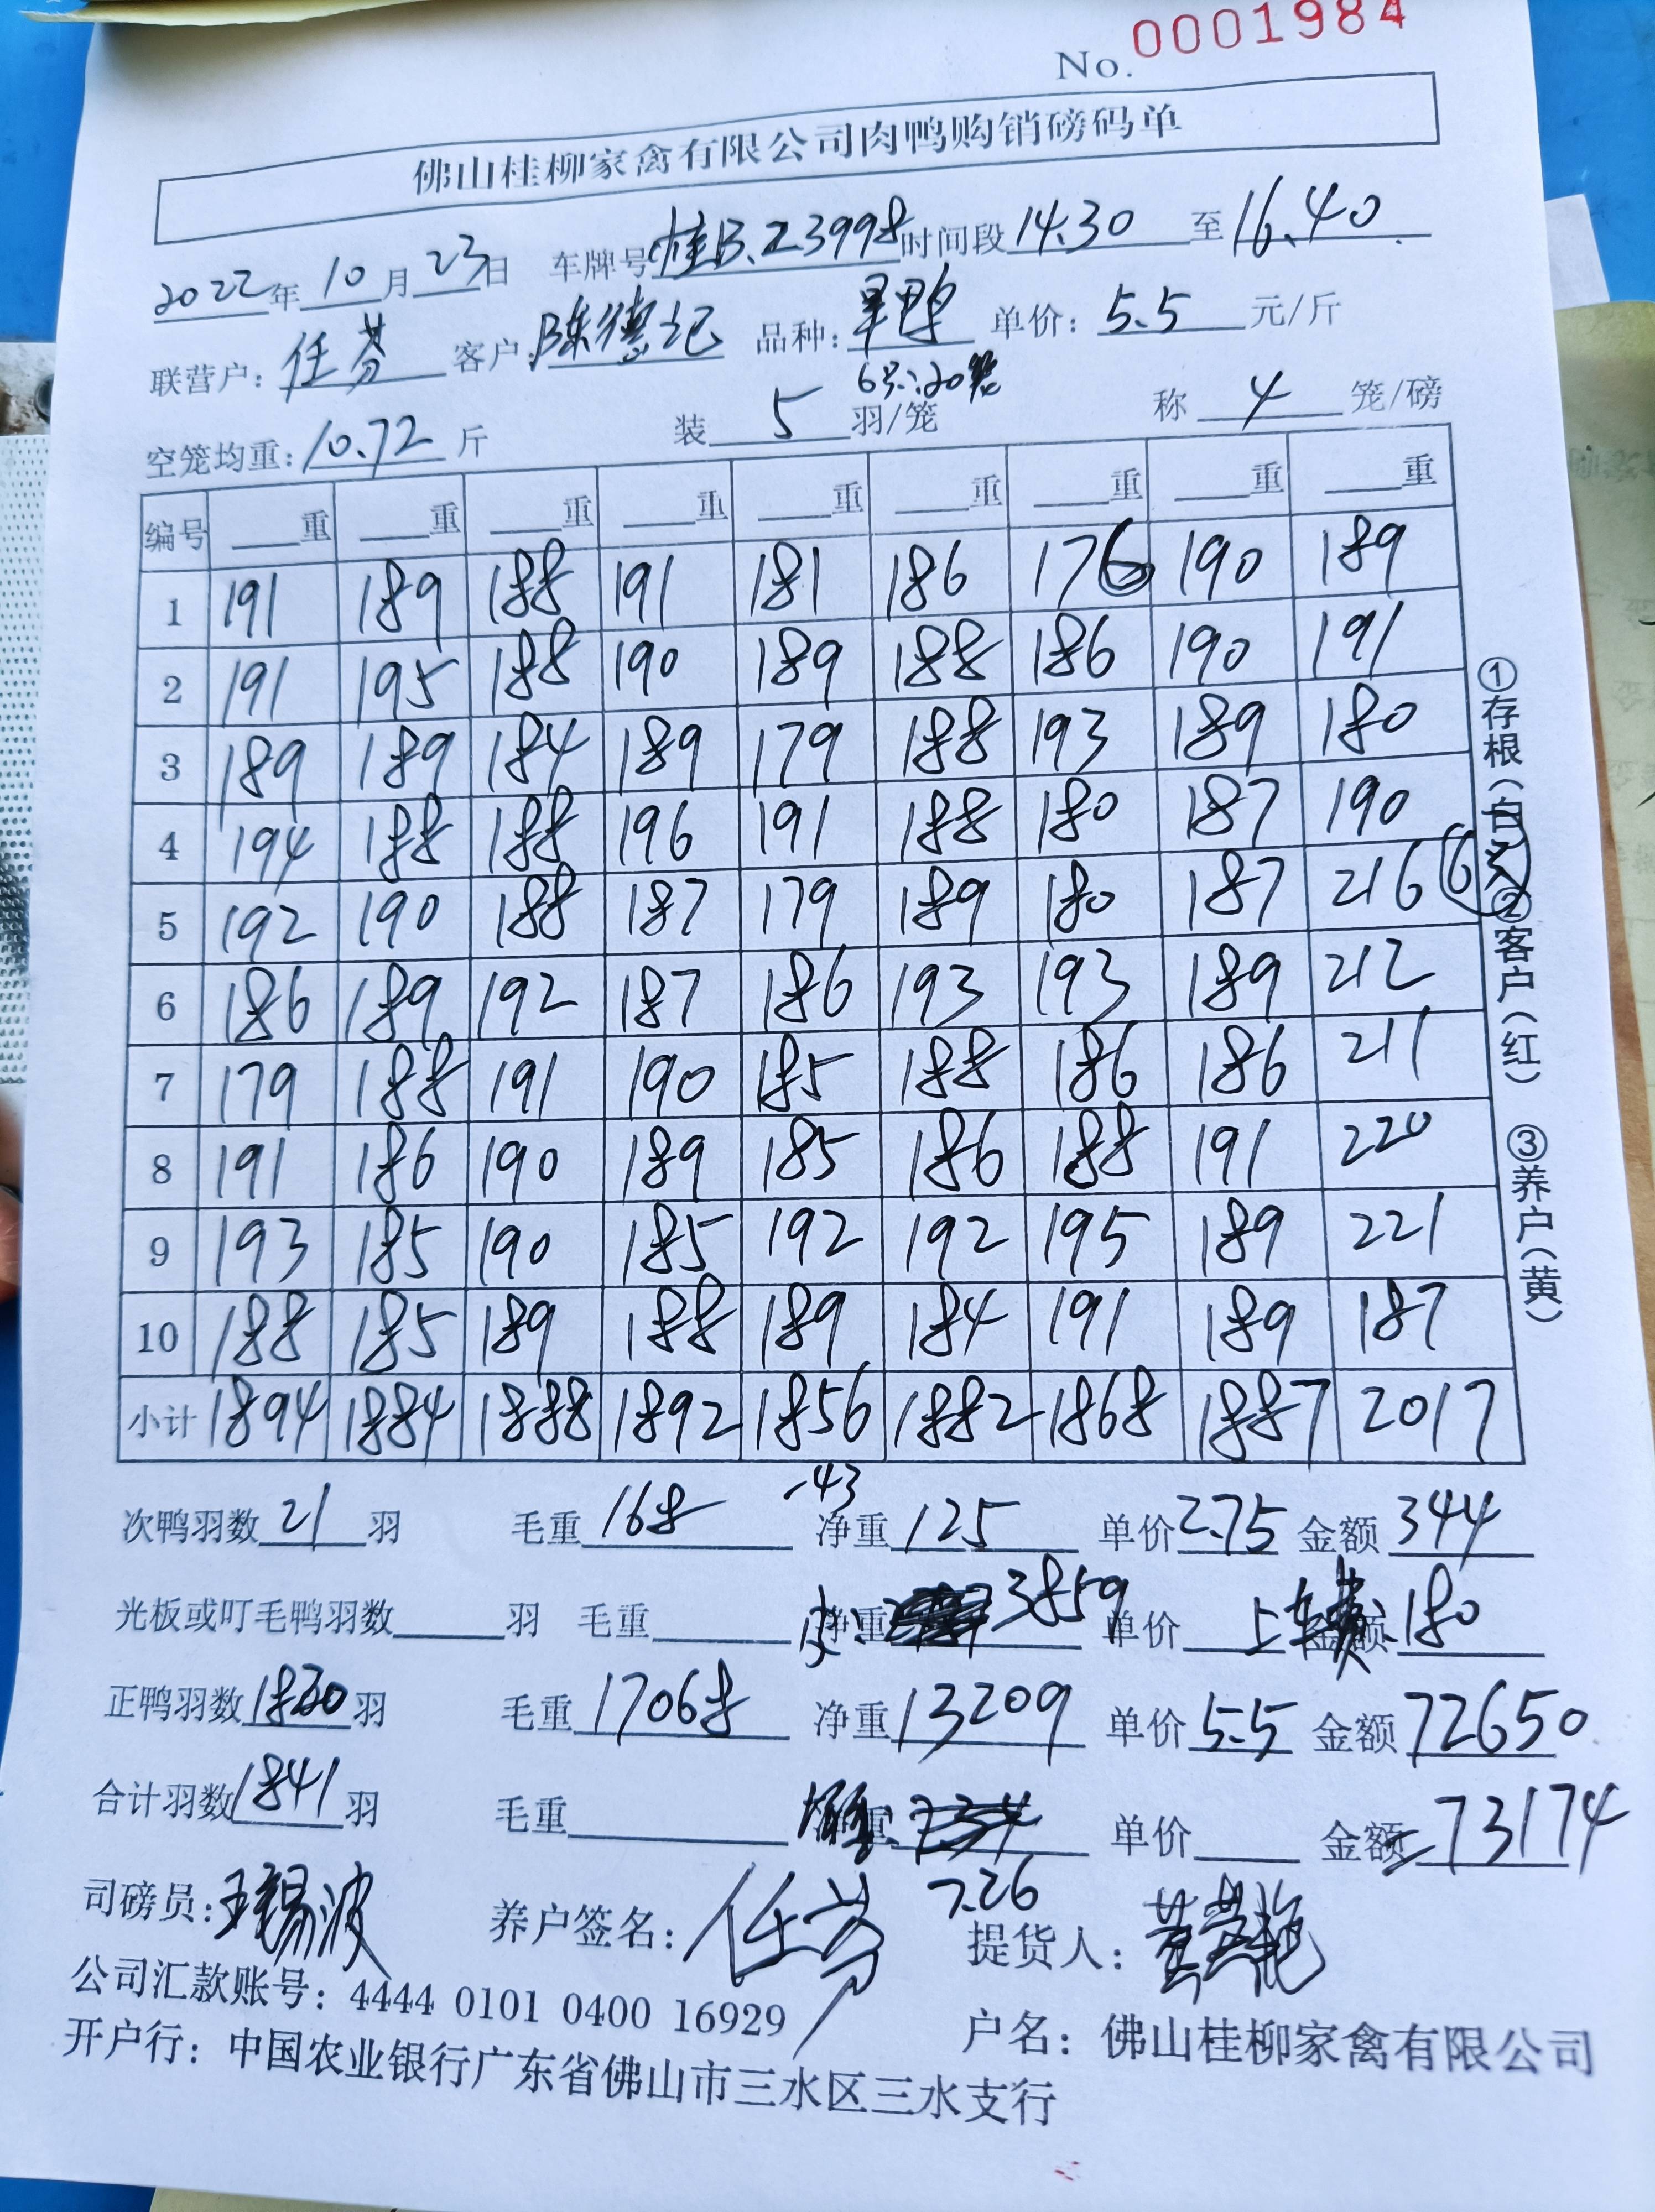 No. 0001984
佛山桂柳家禽有限公司肉鸭购销磅码单
2022年10月23日 车牌号桂B.Z3998时间段14.30至16.40
联营户：任芬 客户：陈德记 品种：旱鸭 单价：5.5元/斤
6只:20笼
空笼均重：10.72斤 装5羽/笼 称4笼/磅
编号 重 重 重 重 重 重 重 重 重
1 191 189 188 191 181 186 176 190 189
2 191 195 188 190 189 188 186 190 191
3 189 189 184 189 179 188 193 189 180
4 194 188 188 196 191 188 180 187 190
5 192 190 188 187 179 189 180 187 216 6只
6 186 189 192 187 186 193 193 189 212
7 179 188 191 190 185 188 186 186 211
8 191 186 190 189 185 186 188 191 220
9 193 185 190 185 192 192 195 189 221
10 188 185 189 188 189 184 191 189 187
小计 1894 1884 1888 1892 1856 1882 1868 1887 2017
①存根（白）②客户（红）③养户（黄）
次鸭羽数21羽 毛重168 -43 净重125 单价2.75 金额344
光板或叮毛鸭羽数 羽 毛重 净重 3859 单价 上车费 金额180
正鸭羽数1820羽 毛重17068 净重13209 单价5.5 金额72650
合计羽数1841羽 毛重 重 单价 金额73174
7.26
司磅员： 养户签名：任芬 提货人：
公司汇款账号：4444 0101 0400 16929 户名：佛山桂柳家禽有限公司
开户行：中国农业银行广东省佛山市三水区三水支行